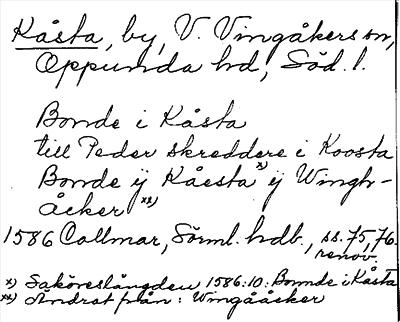 Kåsta, by, V. Vingåkers sn,
Oppunda hd, Söd. l.
Bonde i Kåsta
till Peder skreddere i Koosta
Bonde ÿ Kåesta x) ÿ Wingh-
åcker xx)
1586 Callmar, Sörml. hdb., ss. 75, 76.
renov.
x) Saköreslängden 1586:10: Bonnde i Kåsta
xx) Ändrat från: Wingååcker